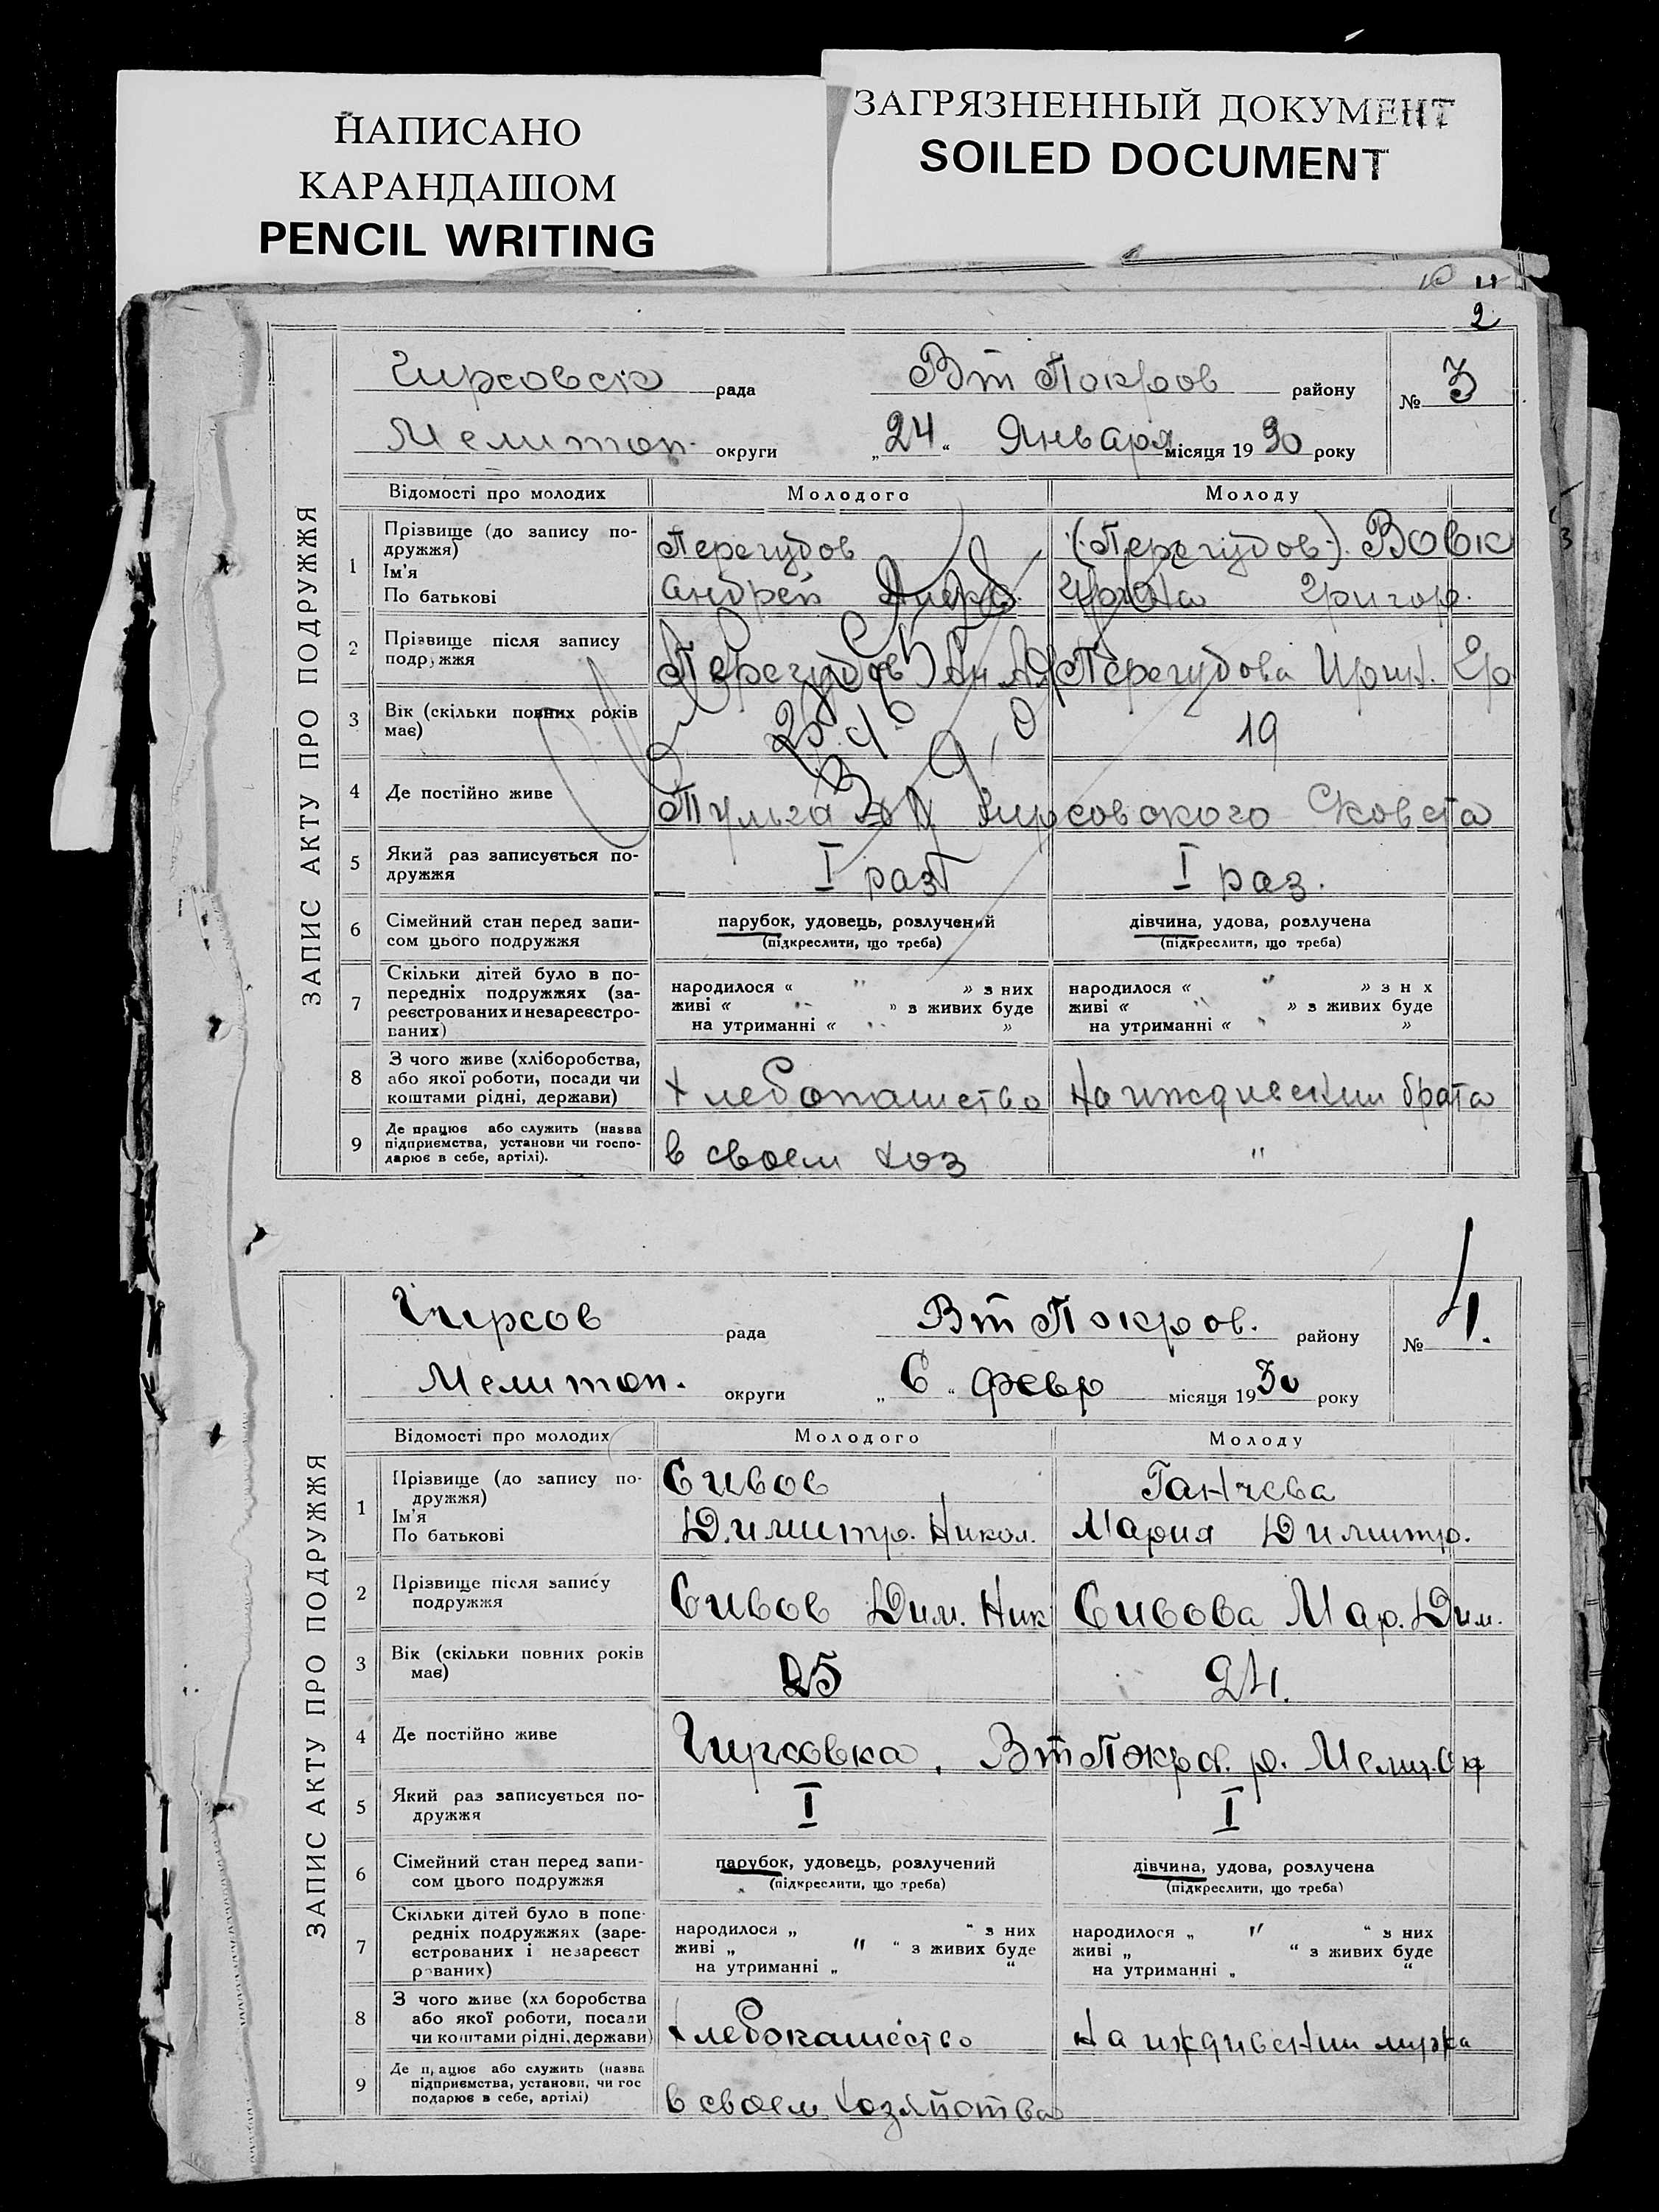 НАПИСАНО
КАРАНДАШОМ
PENCIL WRITING
ЗАГРЯЗНЕННЫЙ ДОКУМЕНТ
SOILED DOCUMENT
2
ЗАПИС АКТУ ПРО ПОДРУЖЖЯ
Гирсовск рада Вт Покров району № 3
Мелитоп. округи „24“ Января місяця 1930 року
Відомості про молодих Молодого Молоду
1 Прізвище (до запису по-
дружжя) Перегудов (Перегудов). Вовк
Ім'я
По батькові Андрей Григор.
2 Прізвище після запису
подружжя Перегудов Перегудова Ирин. Гр
3 Вік (скільки повних років
має) 19
4 Де постійно живе Гирсовского
5 Який раз записується по-
дружжя I раз I раз.
6 Сімейний стан перед запи-
сом цього подружжя парубок, удовець, розлучений дівчина, удова, розлучена
(підкреслити, що треба) (підкреслити, що треба)
7 Скільки дітей було в по-
передніх подружжях (за-
реєстрованих и незареєстро-
ваних)
народилося « " » з них народилося « " » з н х
живі « » з живих буде живі « » з живих буде
на утриманні « » на утриманні « »
8 З чого живе (хліборобства,
або якої роботи, посади чи
коштами рідні, держави) Хлебопашество На иждивении брата
9 Де працює або служить (назва
підприємства, установи чи госпо-
дарює в себе, артілі). в своем хоз "
ЗАПИС АКТУ ПРО ПОДРУЖЖЯ
Гирсов рада Вт Покров. району № 4.
Мелитоп. округи „6“ февр місяця 1930 року
Відомості про молодих Молодого Молоду
1 Прізвище (до запису по-
дружжя) Сивов Ганчева
Ім'я
По батькові Димитр. Никол. Мария Димитр.
2 Прізвище після запису
подружжя Сивов Дим. Ник Сивова Мар. Дим.
3 Вік (скільки повних років
має) 25 24.
4 Де постійно живе Гирсовка, Вт Покров. р. Мелит. Ок
5 Який раз записується по-
дружжя I I
6 Сімейний стан перед запи-
сом цього подружжя парубок, удовець, розлучений дівчина, удова, розлучена
(підкреслити, що треба) (підкреслити, що треба)
7 Скільки дітей було в попе-
редніх подружжях (заре-
єстрованих і незареєст
рованих)
народилося „ “ з них народилося „ " “ з них
живі „ " “ з живих буде живі „ “ з живих буде
на утриманні „ “ на утриманні „ “
8 З чого живе (хл боробства
або якої роботи, посади
чи коштами рідні, держави) Хлебопашество На иждивении мужа
9 Де працює або служить (назва
підприємства, установи, чи гос
подарює в себе, артілі) в своем хозяйства